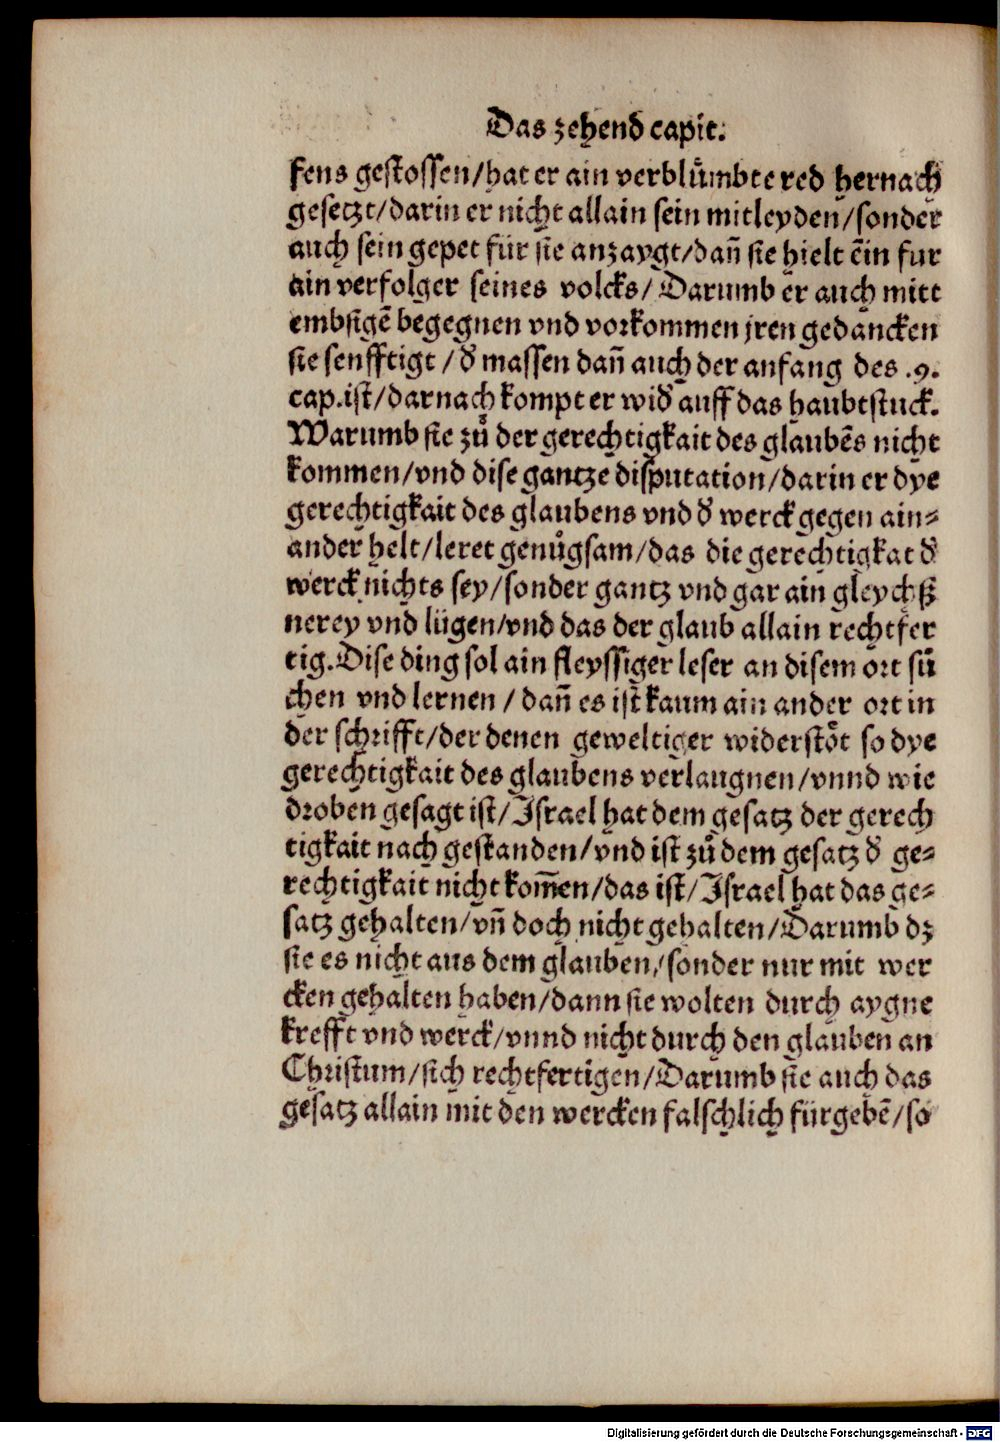 Das zehend capit.
fens gestossen/hat er ain verblůmbte red hernach
gesetzt/darin er nicht allain sein mitleyden/sonder
auch sein gepet für sie anzaygt/dañ sie hielt ein für
ain verfolger seines volcks/Darumb er auch mitt
embsigē begegnen vnd vorkommen jren gedancken
sie senfftigt/d̕ massen dañ auch der anfang des .9.
cap.ist/darnach kompt er wid̕ auff das haubtstuck.
Warumb sie zů der gerechtigkait des glaubēs nicht
kommen/vnd dise gantze disputation/darin er dye
gerechtigkait des glaubens vnd d̕ werck gegen ain⸗
ander helt/leret genůgsam/das die gerechtigkat d̕
werck nichts sey/sonder gantz vnd gar ain gleychß
nerey vnd lügen/vnd das der glaub allain rechtfer
tig.Dise ding sol ain fleyssiger leser an disem ort sů
chen vnd lernen/dañ es ist kaum ain ander ort in
der schrifft/der denen geweltiger widerstöt so dye
gerechtigkait des glaubens verlaugnen/vnnd wie
droben gesagt ist/Israel hat dem gesatz der gerech
tigkait nach gestanden/vnd ist zů dem gesatz d̕ ge⸗
rechtigkait nicht kom̄en/das ist/Israel hat das ge⸗
satz gehalten/vñ doch nicht gehalten/Darumb dz
sie es nicht aus dem glauben/sonder nur mit wer
cken gehalten haben/dann sie wolten durch aygne
krefft vnd werck/vnnd nicht durch den glauben an
Christum/sich rechtfertigen/Darumb sie auch das
gesatz allain mit den wercken falschlich fürgebē/so
Digitalisierung gefördert durch die Deutsche Forschungsgemeinschaft - DFG